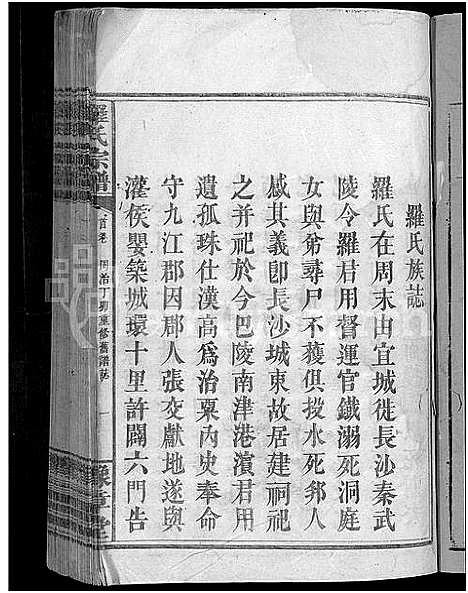 羅氏族誌
羅氏在周末由宜城徙長沙秦武
陵令羅君用督運官鐵溺死洞庭
女與弟尋尸不蒦俱投水死邦人
感其義卽長沙城東故居建祠祀
之并祀於今巴陵南津港濱君用
遺孤珠仕漢高爲治粟內史奉命
守九江郡因郡人張𡭊獻地遂與
灌侯嬰築城環十里許闢六門告
羅氏宗譜
首卷 同治丁卯重修舊譜誌 一
豫章堂